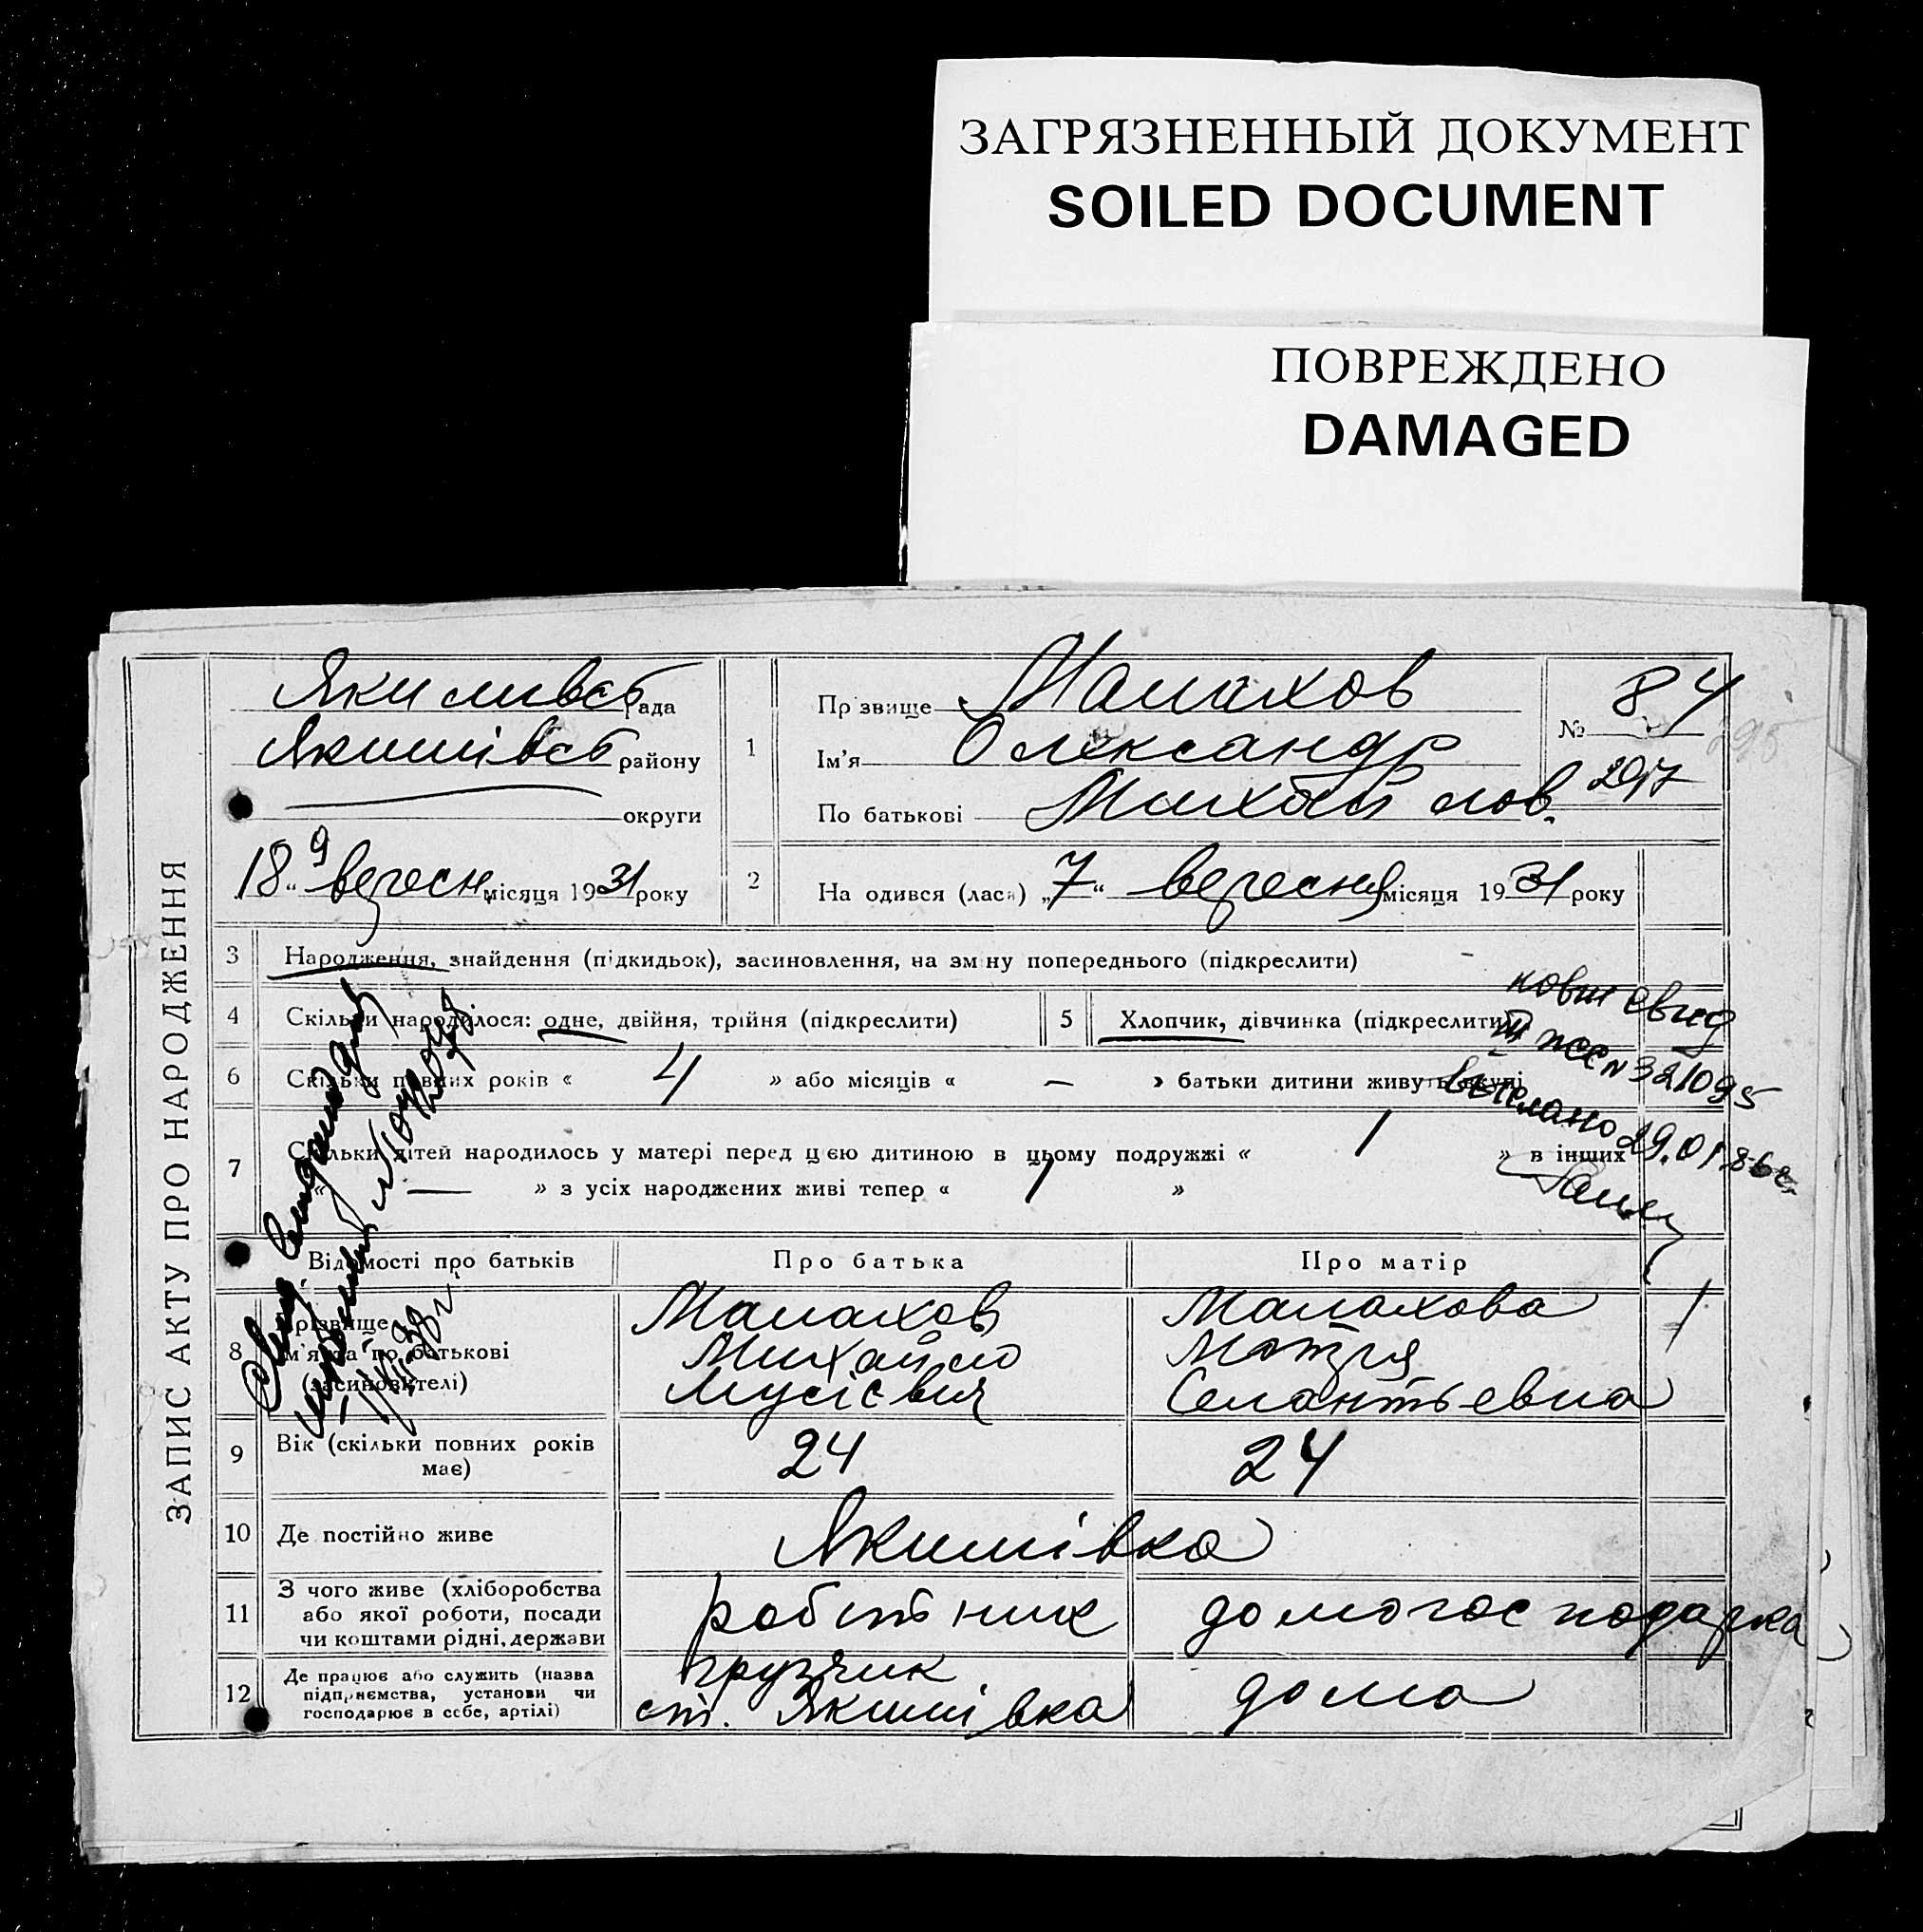 ЗАГРЯЗНЕННЫЙ ДОКУМЕНТ
SOILED DOCUMENT
ПОВРЕЖДЕНО
DAMAGED
ЗАПИС АКТУ ПРО НАРОДЖЕННЯ
рада
Якимівсь району
округи
18 " 9 вересн місяця 1931 року
1
Пр звище Малахов
Ім'я Олександр
По батькові Михайлов.
№ 84
297
2
На одився (лася) „7" вересня місяця 1931 року
3 Народження, знайдення (підкидьок), засиновлення, на зміну попереднього (підкреслити)
4 Скільки народилося: одне, двійня, трійня (підкреслити)
5 Хлопчик, дівчинка (підкреслити)
6 Скільки повних років « 4 » або місяців « — » батьки дитини живуть вкупі
7 Скільки дітей народилось у матері перед цією дитиною в цьому подружжі « 1 » в інших
« — » з усіх народжених живі тепер « 1 »
№ 321095
29.01.86г.
Відомості про батьків Про батька Про матір
8 Прізвище
ім'я та по батькові
(засиновителі)
Малахов
Михайло
Мусієвич
Малахова
Мотря
9 Вік (скільки повних років має) 24 24
10 Де постійно живе Якимівка
11 З чого живе (хліборобства
або якої роботи, посади
чи коштами рідні, держави
робітник домогосподарка
12 Де працює або служить (назва
підприємства, установи чи
господарює в себе, артілі)
грузчик
ст. Якимівка
дома